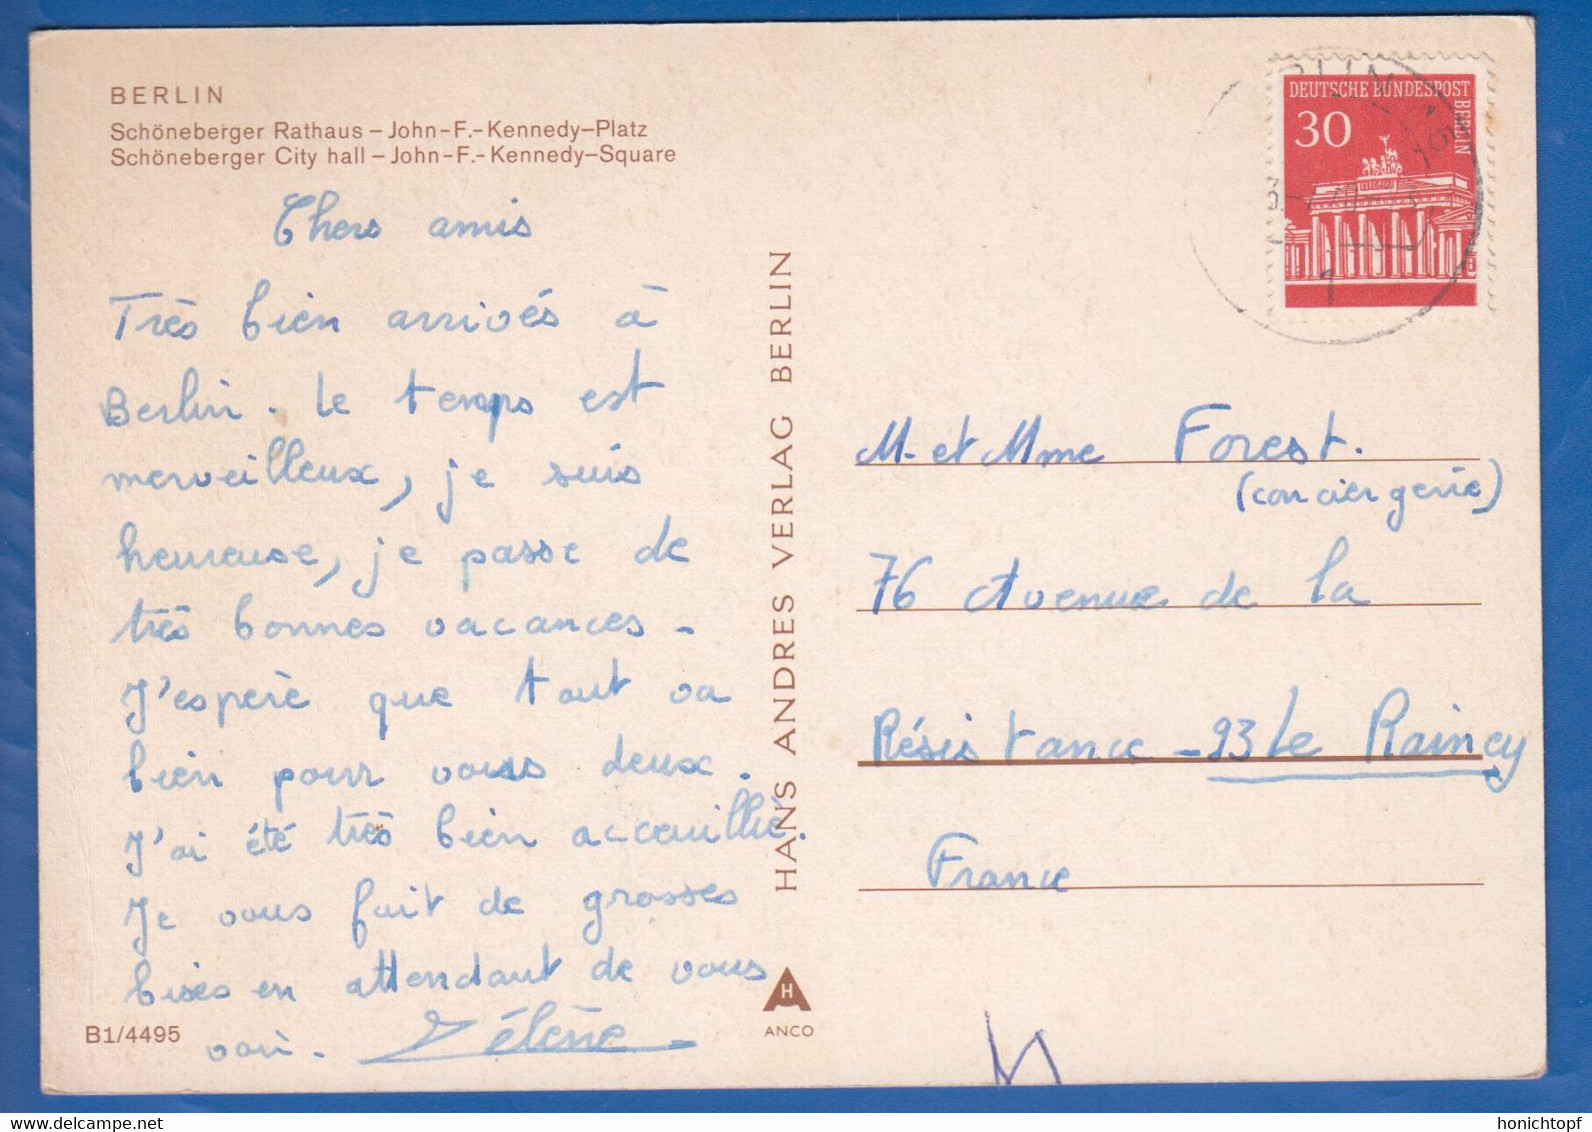 BERLIN
Schöneberger Rathaus – John-F.-Kennedy-Platz
Schöneberger City hall – John-F.-Kennedy-Square
Chers amis
Très bien arrivés à
Berlin. le temps est
merveilleux, je suis
heureuse, je passe de
très bonnes vacances -
J'espère que tout va
bien pour vous deux.
J'ai été très bien acceuillie.
Je vous fait de grosses
bises en attendant de vous
voir. Hélène
B1/4495
HANS ANDRES VERLAG BERLIN
H
ANCO
DEUTSCHE BUNDESPOST
BERLIN
30
1
M. et Mme Forest.
(conciergerie)
76 Avenue de la
Résistance - 93 Le Raincy
France
delcampe.net
honichtopf